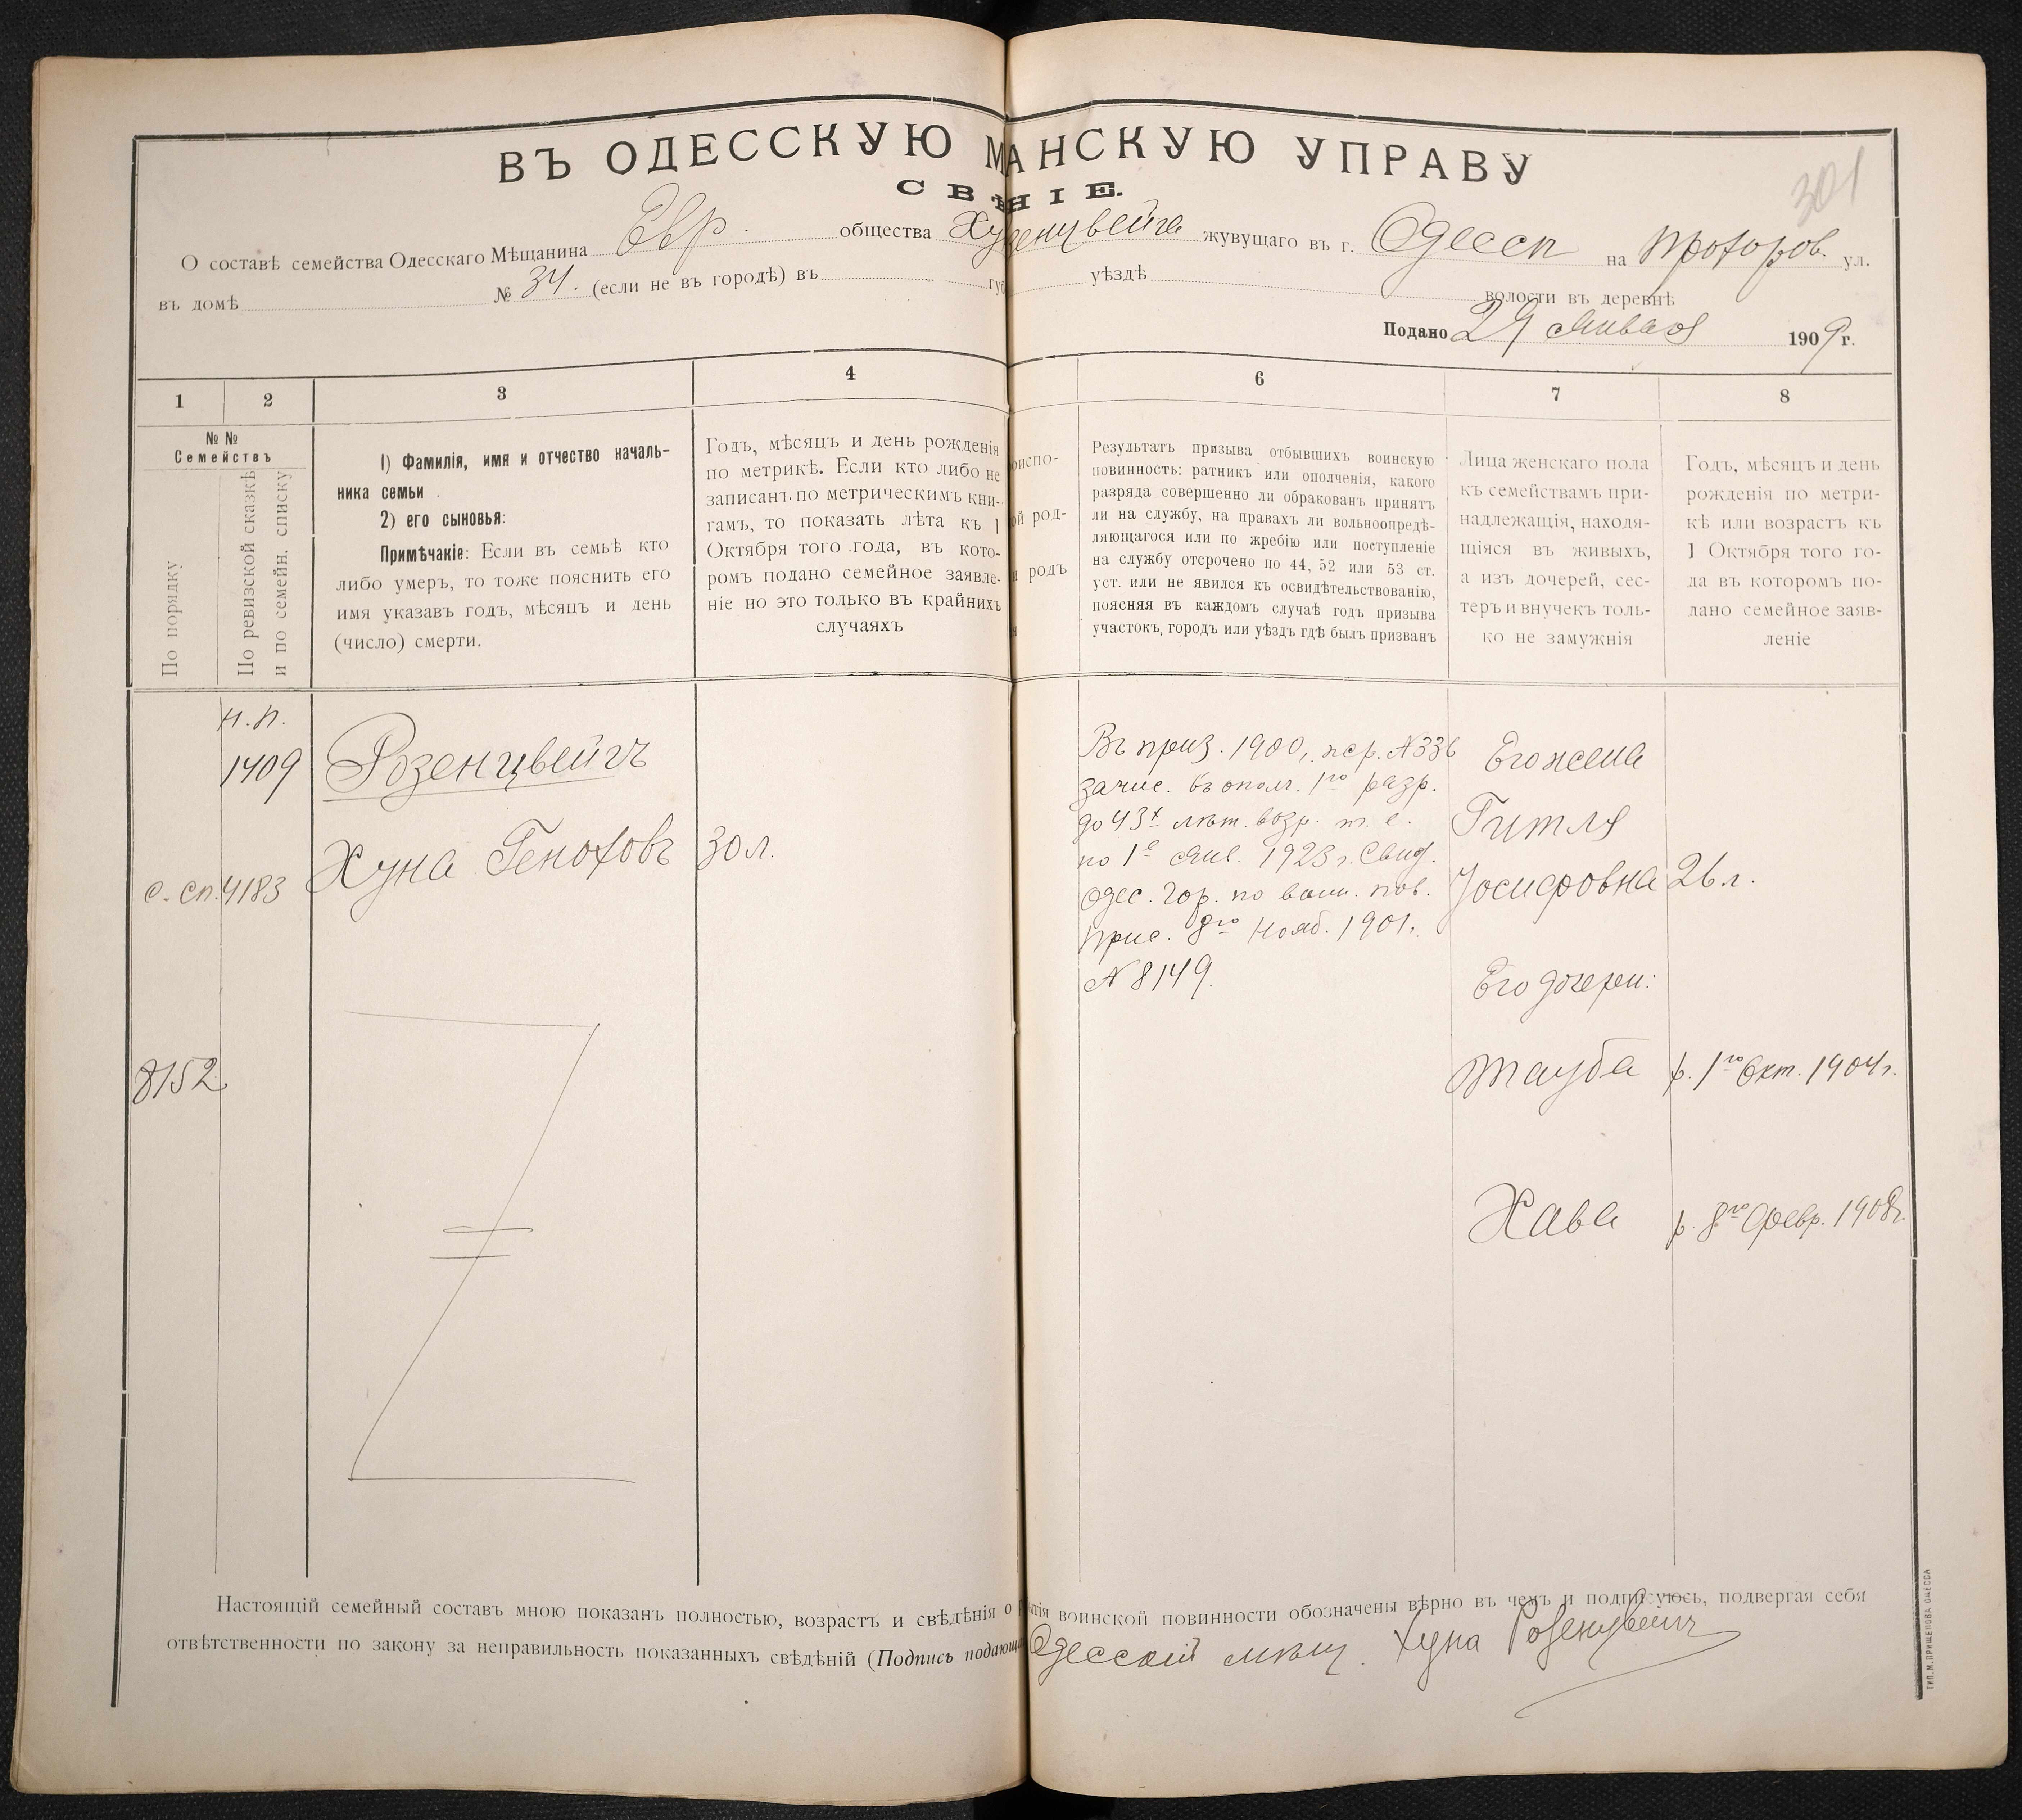 301
ВЪ ОДЕССКУЮ М АНСКУЮ УПРАВУ
СВ НІЕ.
О составѣ семейства Одесскаго Мѣщанина Евр. общества Ху енцвейга жувущаго въ г. Одессѣ на Прохоров. ул.
въ домѣ № 34. (если не въ городѣ) въ губ уѣздѣ волости въ деревнѣ
Подано 29 Января 1909 г.
1 2 3 4 6 7 8
№№
Семействъ
По порядку
По ревизской сказкѣ
и по семейн. списку
1) Фамилія, имя и отчество началь-
ника семьи .
2) его сыновья:
Примѣчаніе: Если въ семьѣ кто
либо умеръ, то тоже пояснить его
имя указавъ годъ, мѣсяцъ и день
(число) смерти.
Годъ, мѣсяцъ и день рожденія
по метрикѣ. Если кто либо не
записанъ по метрическимъ кни-
гамъ, то показать лѣта къ 1
Октября того года, въ кото-
ромъ подано семейное заявле-
ніе но это только въ крайнихъ
случаяхъ
оиспо-
ой род-
и родъ
Результатъ призыва отбывшихъ воинскую
повинность: ратникъ или ополченія, какого
разряда совершенно ли обракованъ принятъ
ли на службу, на правахъ ли вольноопредѣ-
ляющагося или по жребію или поступленіе
на службу отсрочено по 44, 52 или 53 ст.
уст. или не явился къ освидѣтельствованію,
поясняя въ каждомъ случаѣ годъ призыва
участокъ, городъ или уѣздъ гдѣ былъ призванъ
Лица женскаго пола
къ семействамъ при-
надлежащія, находя-
щіяся въ живыхъ,
а изъ дочерей, сес-
теръ и внучекъ толь-
ко не замужнія
Годъ, мѣсяцъ и день
рожденія по метри-
кѣ или возрастъ къ
1 Октября того го-
да въ которомъ по-
дано семейное заяв-
леніе
н.п.
1409
с. сп. 4183
8152
Розенцвейгъ
Хуна Геноховъ 30 л.
Въ приз. 1900, жер. №336
зачис. въ ополч. 1го разр.
до 43х лѣт. возр. т. е.
по 1е Янв. 1923 г. Свид.
Одес. Гор. по воин. пов.
Прис. 8го Нояб. 1901.
№ 8149.
Его жена
Гитля
Іосифовна 26 л.
Его дочери:
Тауба р. 1го Окт. 1904 г.
Хава р. 8го Февр. 1908 г.
Настоящій семейный составъ мною показанъ полностью, возрастъ и свѣдѣнія о тія воинской повинности обозначены вѣрно въ чемъ и подписуюсь, подвергая себя
отвѣтственности по закону за неправильность показанныхъ свѣдѣній (Подпись подающ Одесскій мѣщ. Хуна Розенцвейгъ
ТИП. М. ПРИЩЕПОВА ОДЕССА